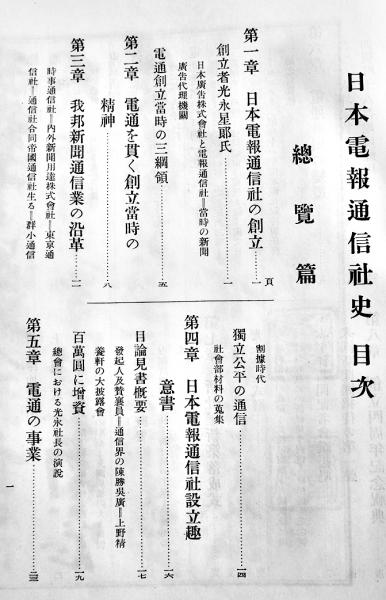 日本電報通信社史 目次
總覽篇
頁
第一章 日本電報通信社の創立……一
創立者光永星郞氏……一
日本廣告株式會社と電報通信社＝當時の新聞
廣告代理機關
電通創立當時の三綱領……五
第二章 電通を貫く創立當時の
精神……八
第三章 我邦新聞通信業の沿革……一一
時事通信社＝內外新聞用達株式會社＝東京通
信社＝通信社合同帝國通信社生る＝群小通信
割據時代
社會部材料の蒐集
獨立公平の通信……一四
第四章 日本電報通信社設立趣
意書……一六
目論見書槪要……一七
發起人及贊襄員＝通信界の陳勝吳廣＝上野精
養軒の大披露會
百萬圓に增資……一九
總會における光永社長の演說
第五章 電通の事業……二三
一